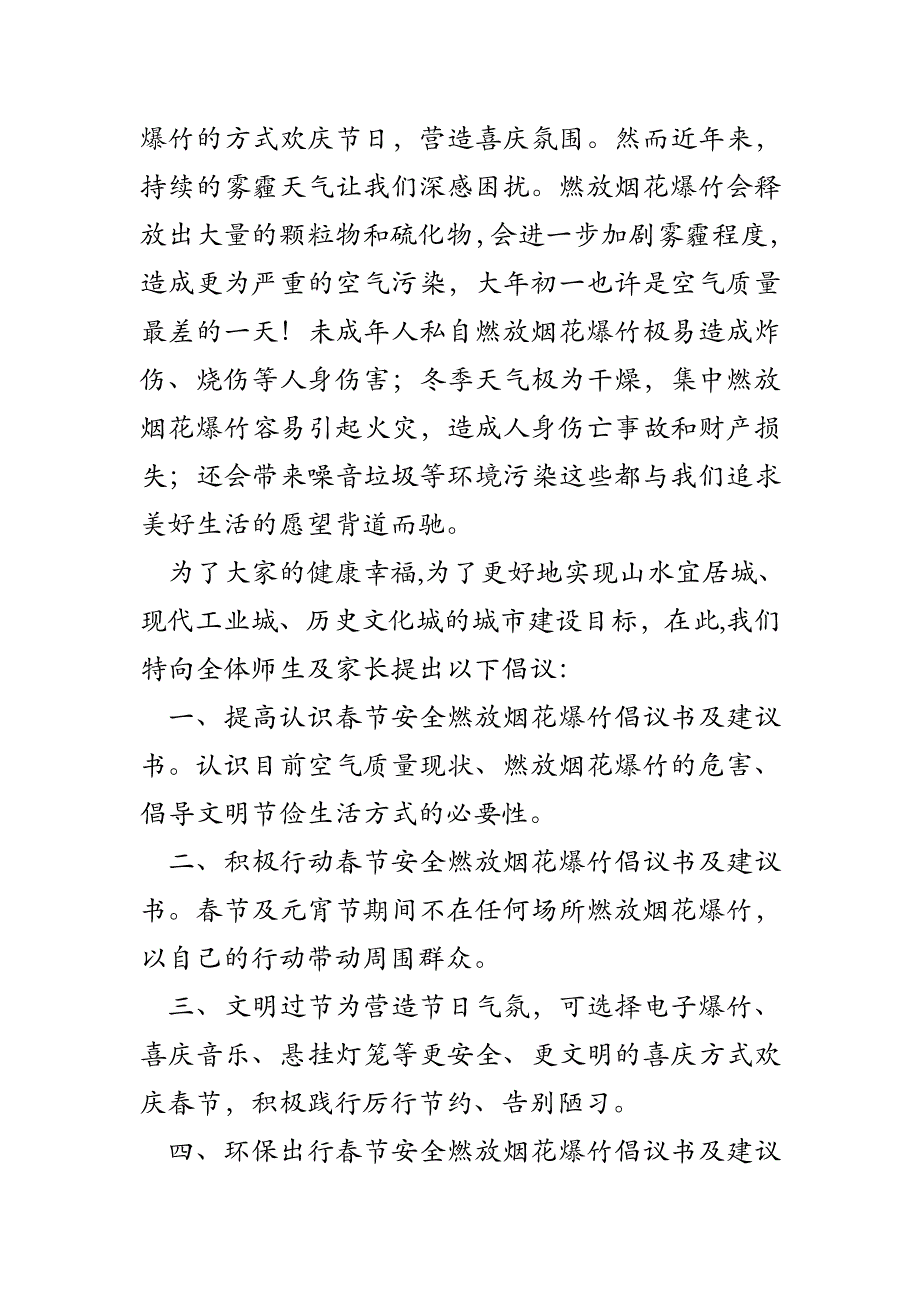 爆竹的方式欢庆节日，营造喜庆氛围。然而近年来，
持续的雾霾天气让我们深感困扰。燃放烟花爆竹会释
放出大量的颗粒物和硫化物，会进一步加剧雾霾程度，
造成更为严重的空气污染，大年初一也许是空气质量
最差的一天！未成年人私自燃放烟花爆竹极易造成炸
伤、烧伤等人身伤害；冬季天气极为干燥，集中燃放
烟花爆竹容易引起火灾，造成人身伤亡事故和财产损
失；还会带来噪音垃圾等环境污染这些都与我们追求
美好生活的愿望背道而驰。
为了大家的健康幸福,为了更好地实现山水宜居城、
现代工业城、历史文化城的城市建设目标，在此,我们
特向全体师生及家长提出以下倡议：
一、提高认识春节安全燃放烟花爆竹倡议书及建议
书。认识目前空气质量现状、燃放烟花爆竹的危害、
倡导文明节俭生活方式的必要性。
二、积极行动春节安全燃放烟花爆竹倡议书及建议
书。春节及元宵节期间不在任何场所燃放烟花爆竹，
以自己的行动带动周围群众。
三、文明过节为营造节日气氛，可选择电子爆竹、
喜庆音乐、悬挂灯笼等更安全、更文明的喜庆方式欢
庆春节，积极践行厉行节约、告别陋习。
四、环保出行春节安全燃放烟花爆竹倡议书及建议